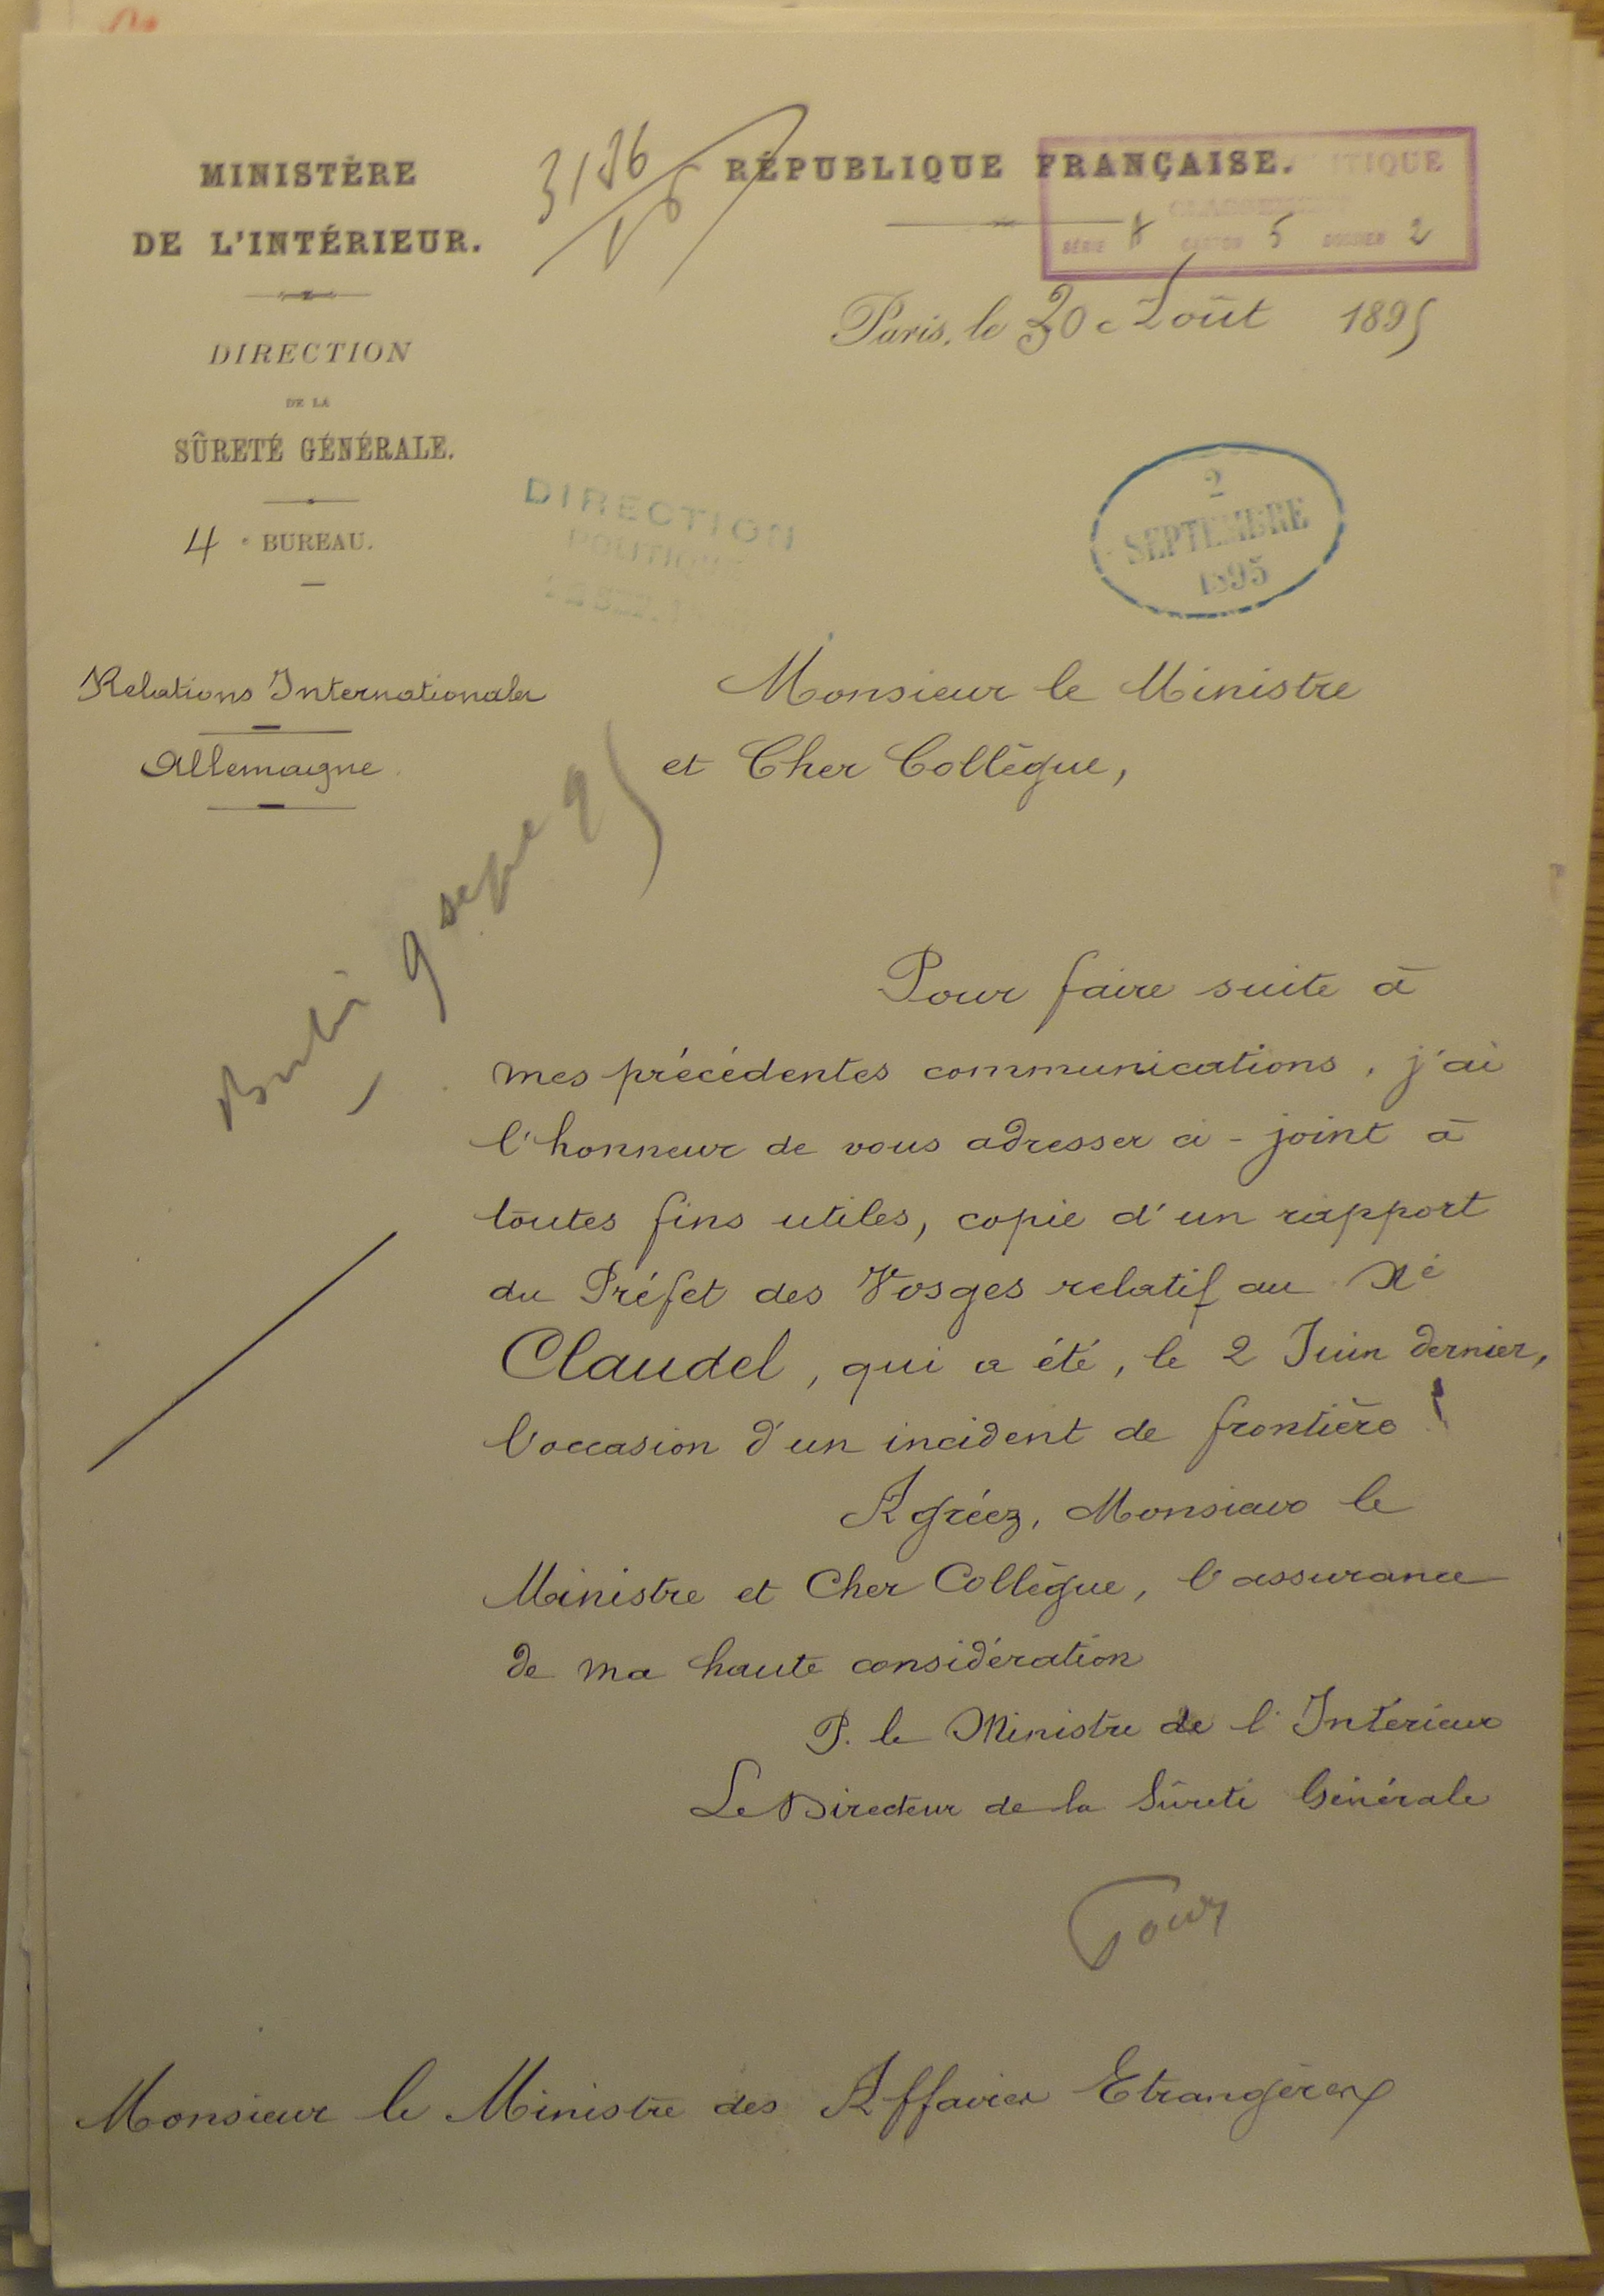 MINISTÈRE
DE L'INTÉRIEUR.
DIRECTION
DE LA
SÛRETÉ GÉNÉRALE.
4e BUREAU.
Relations Internationales
Allemagne
RÉPUBLIQUE FRANÇAISE.
SÉRIE A CARTON 5 DOSSIER 2
Paris, le 30 Août 1895
DIRECTION
POLITIQUE
2
SEPTEMBRE
1895
Monsieur le Ministre
et Cher Collègue,
Berlin 9 sepbre 95
Pour faire suite à
mes précédentes communications, j'ai
l'honneur de vous adresser ci-joint à
toutes fins utiles, copie d'un rapport
du Préfet des Vosges relatif au Né
Claudel, qui a été, le 2 Juin dernier,
l'occasion d'un incident de frontière
Agréez, Monsieur le
Ministre et Cher Collègue, l'assurance
de ma haute considération
P. le Ministre de l'Intérieur
Le Directeur de la Sûreté Générale
Monsieur le Ministre des Affaires Etrangères